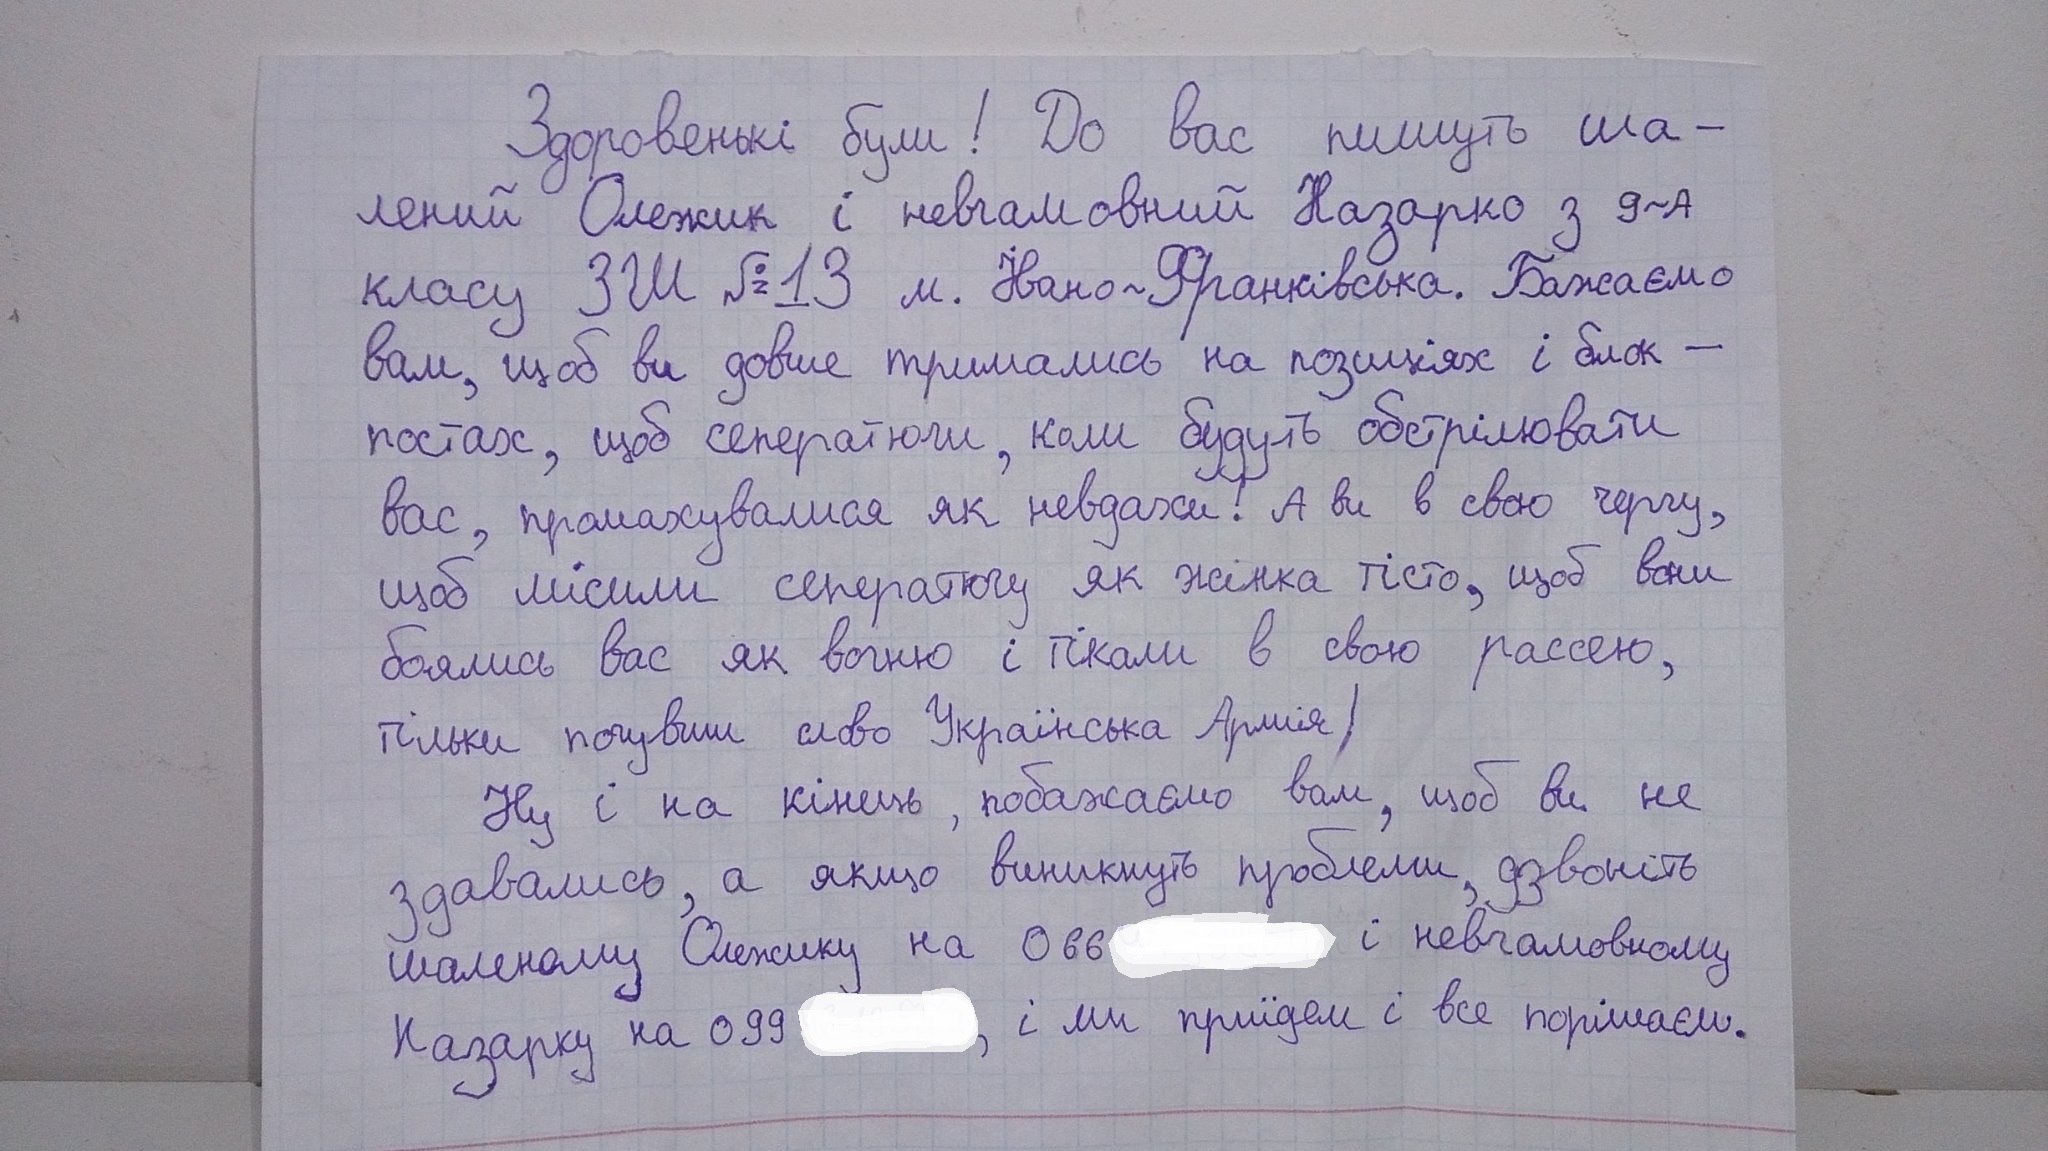 Здоровенькі були! До вас пишуть ша-
лений Олежик і невгамовний Назарко з 9-А
класу ЗШ №13 м. Івано-Франківська. Бажаємо
вам, щоб ви довше тримались на позиціях і блок-
постах, щоб сеператюги, коли будуть обстрілювати
вас, промахувалися як невдахи! А ви в свою чергу,
щоб місили сеператюгу як жінка тісто, щоб вони
боялись вас як вогню і тікали в свою рассею,
тільки почувши слово Українська Армія!
Ну і на кінець, побажаємо вам, щоб ви не
здавались, а якщо виникнуть проблеми, дзвоніть
шаленому Олежику на 066 і невгамовному
Назарку на 099 , і ми приїдем і все порішаєм.